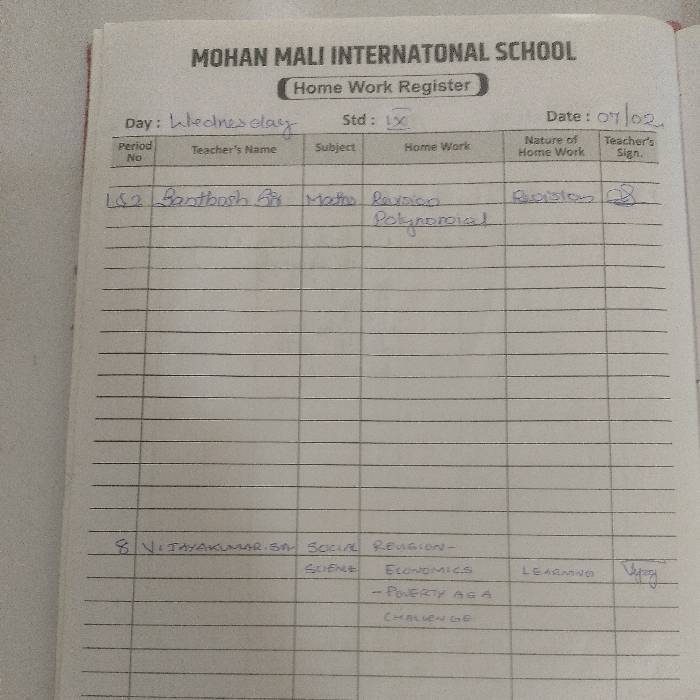 MOHAN MALI INTERNATONAL SCHOOL
Home Work Register
Day : Wednesday Std : IX Date : 07/02
Period No Teacher's Name Subject Home Work Nature of Home Work Teacher's Sign.
1&2 Santhosh Sir Maths Revision Revision
Polynomial
8 VIJAYAKUMAR.SIR SOCIAL REVISION-
SCIENCE ECONOMICS LEARNING
- POVERTY AS A
CHALLENGE